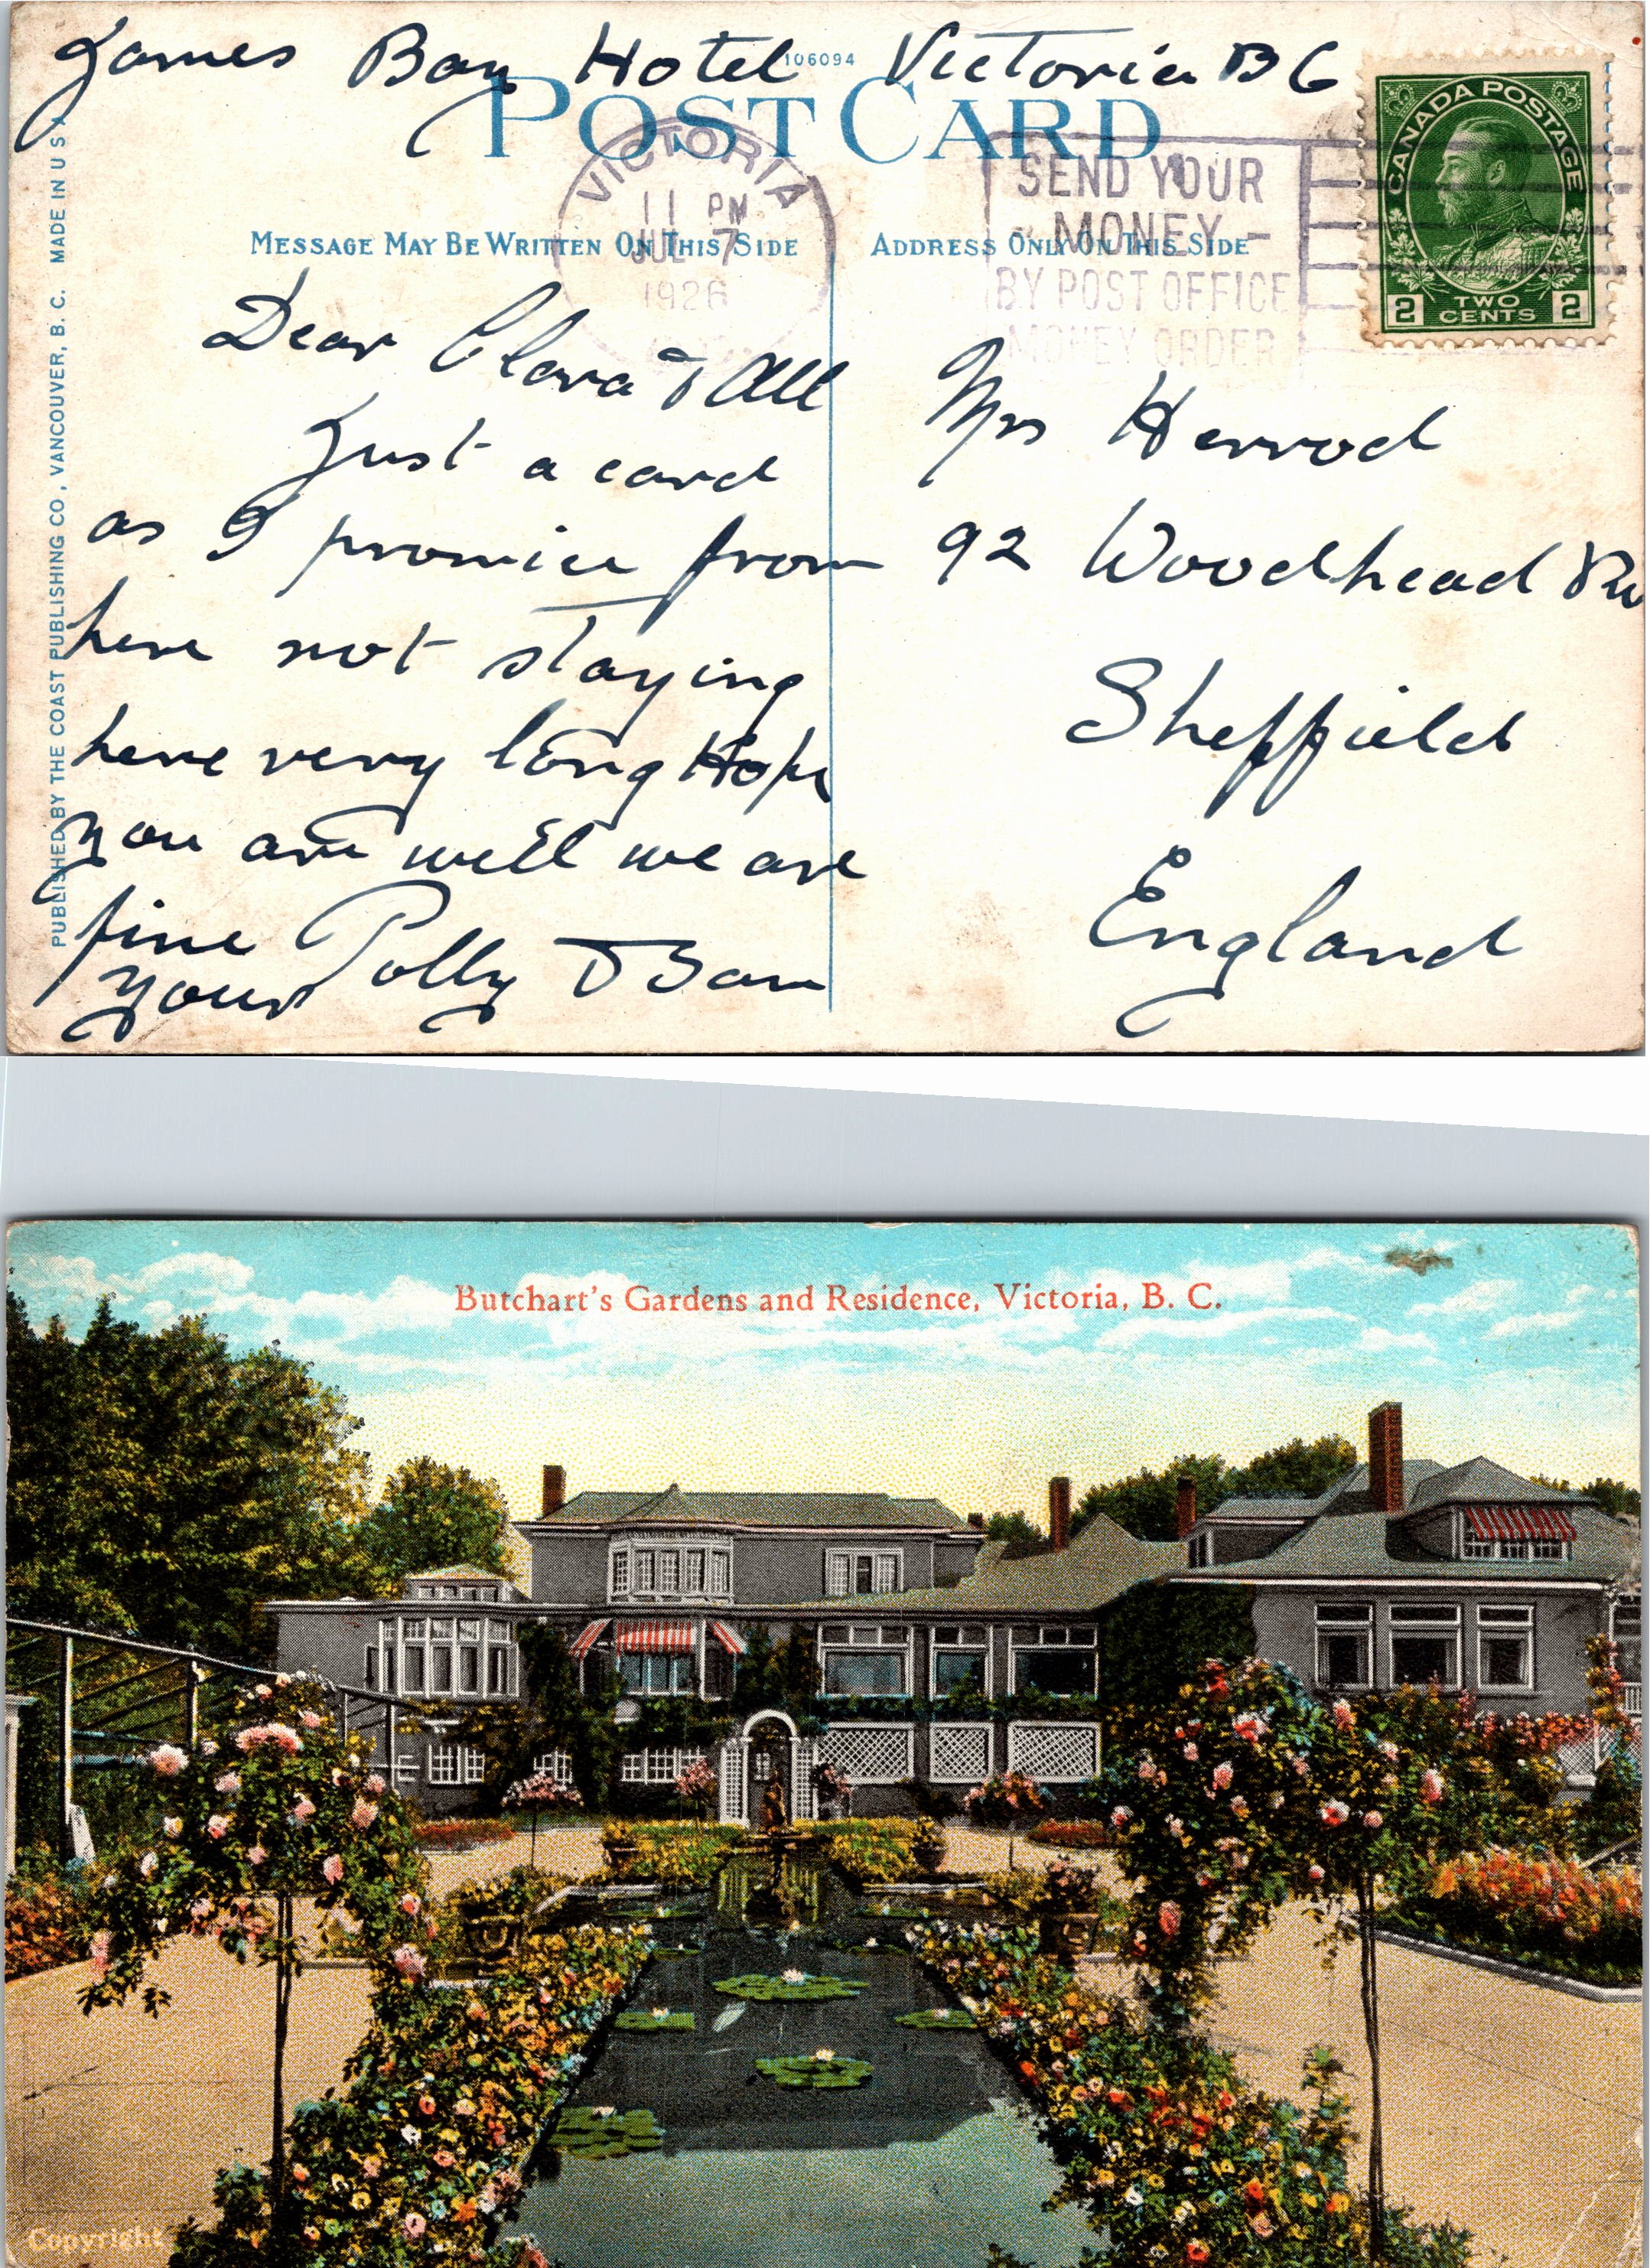 James Bay Hotel Victoria B C
106094
POST CARD
VICTORIA
11 PM
JUL 7
1926
SEND YOUR
MONEY
BY POST OFFICE
MONEY ORDER
CANADA POSTAGE
2 TWO CENTS 2
MESSAGE MAY BE WRITTEN ON THIS SIDE
ADDRESS ONLY ON THIS SIDE
PUBLISHED BY THE COAST PUBLISHING CO., VANCOUVER, B. C. MADE IN U S A
Dear Clara & All
Just a card
as I promise from
here not staying
here very long Hope
you are well we are
fine
your Polly & Sam
Mrs Herrod
92 Woodhead Rd
Sheffield
England
Butchart's Gardens and Residence, Victoria, B. C.
Copyright